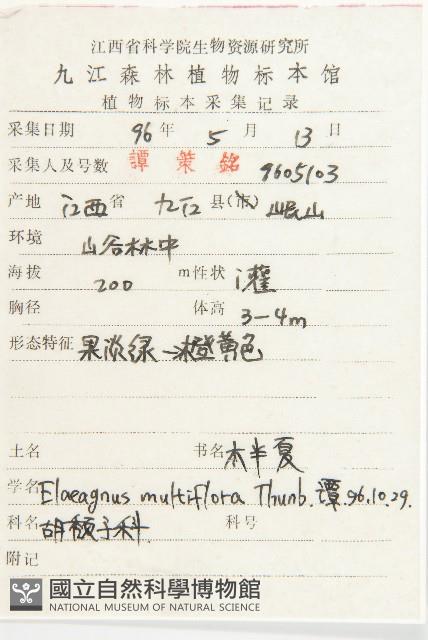 江西省科学院生物资源研究所
九江森林植物标本馆
植物标本采集记录
采集日期 96年 5月 13日
采集人及号数 譚策銘 9605103
产地 江西省 九江县(市) 岷山
环境 山谷林中
海拔 200 m性状 灌
胸径 体高 3-4m
形态特征 果淡绿—橙黄色
土名 书名 木半夏
学名 Elaeagnus multiflora Thunb. 谭.96.10.29.
科名 胡颓子科 科号
附记
國立自然科學博物館
NATIONAL MUSEUM OF NATURAL SCIENCE